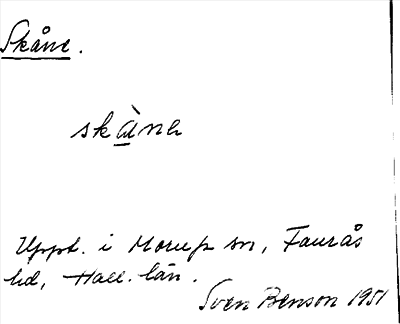 Skåne.
skàne
Uppt. i Morup sn, Faurås
hd, Hall. län.
Sven Benson 1951